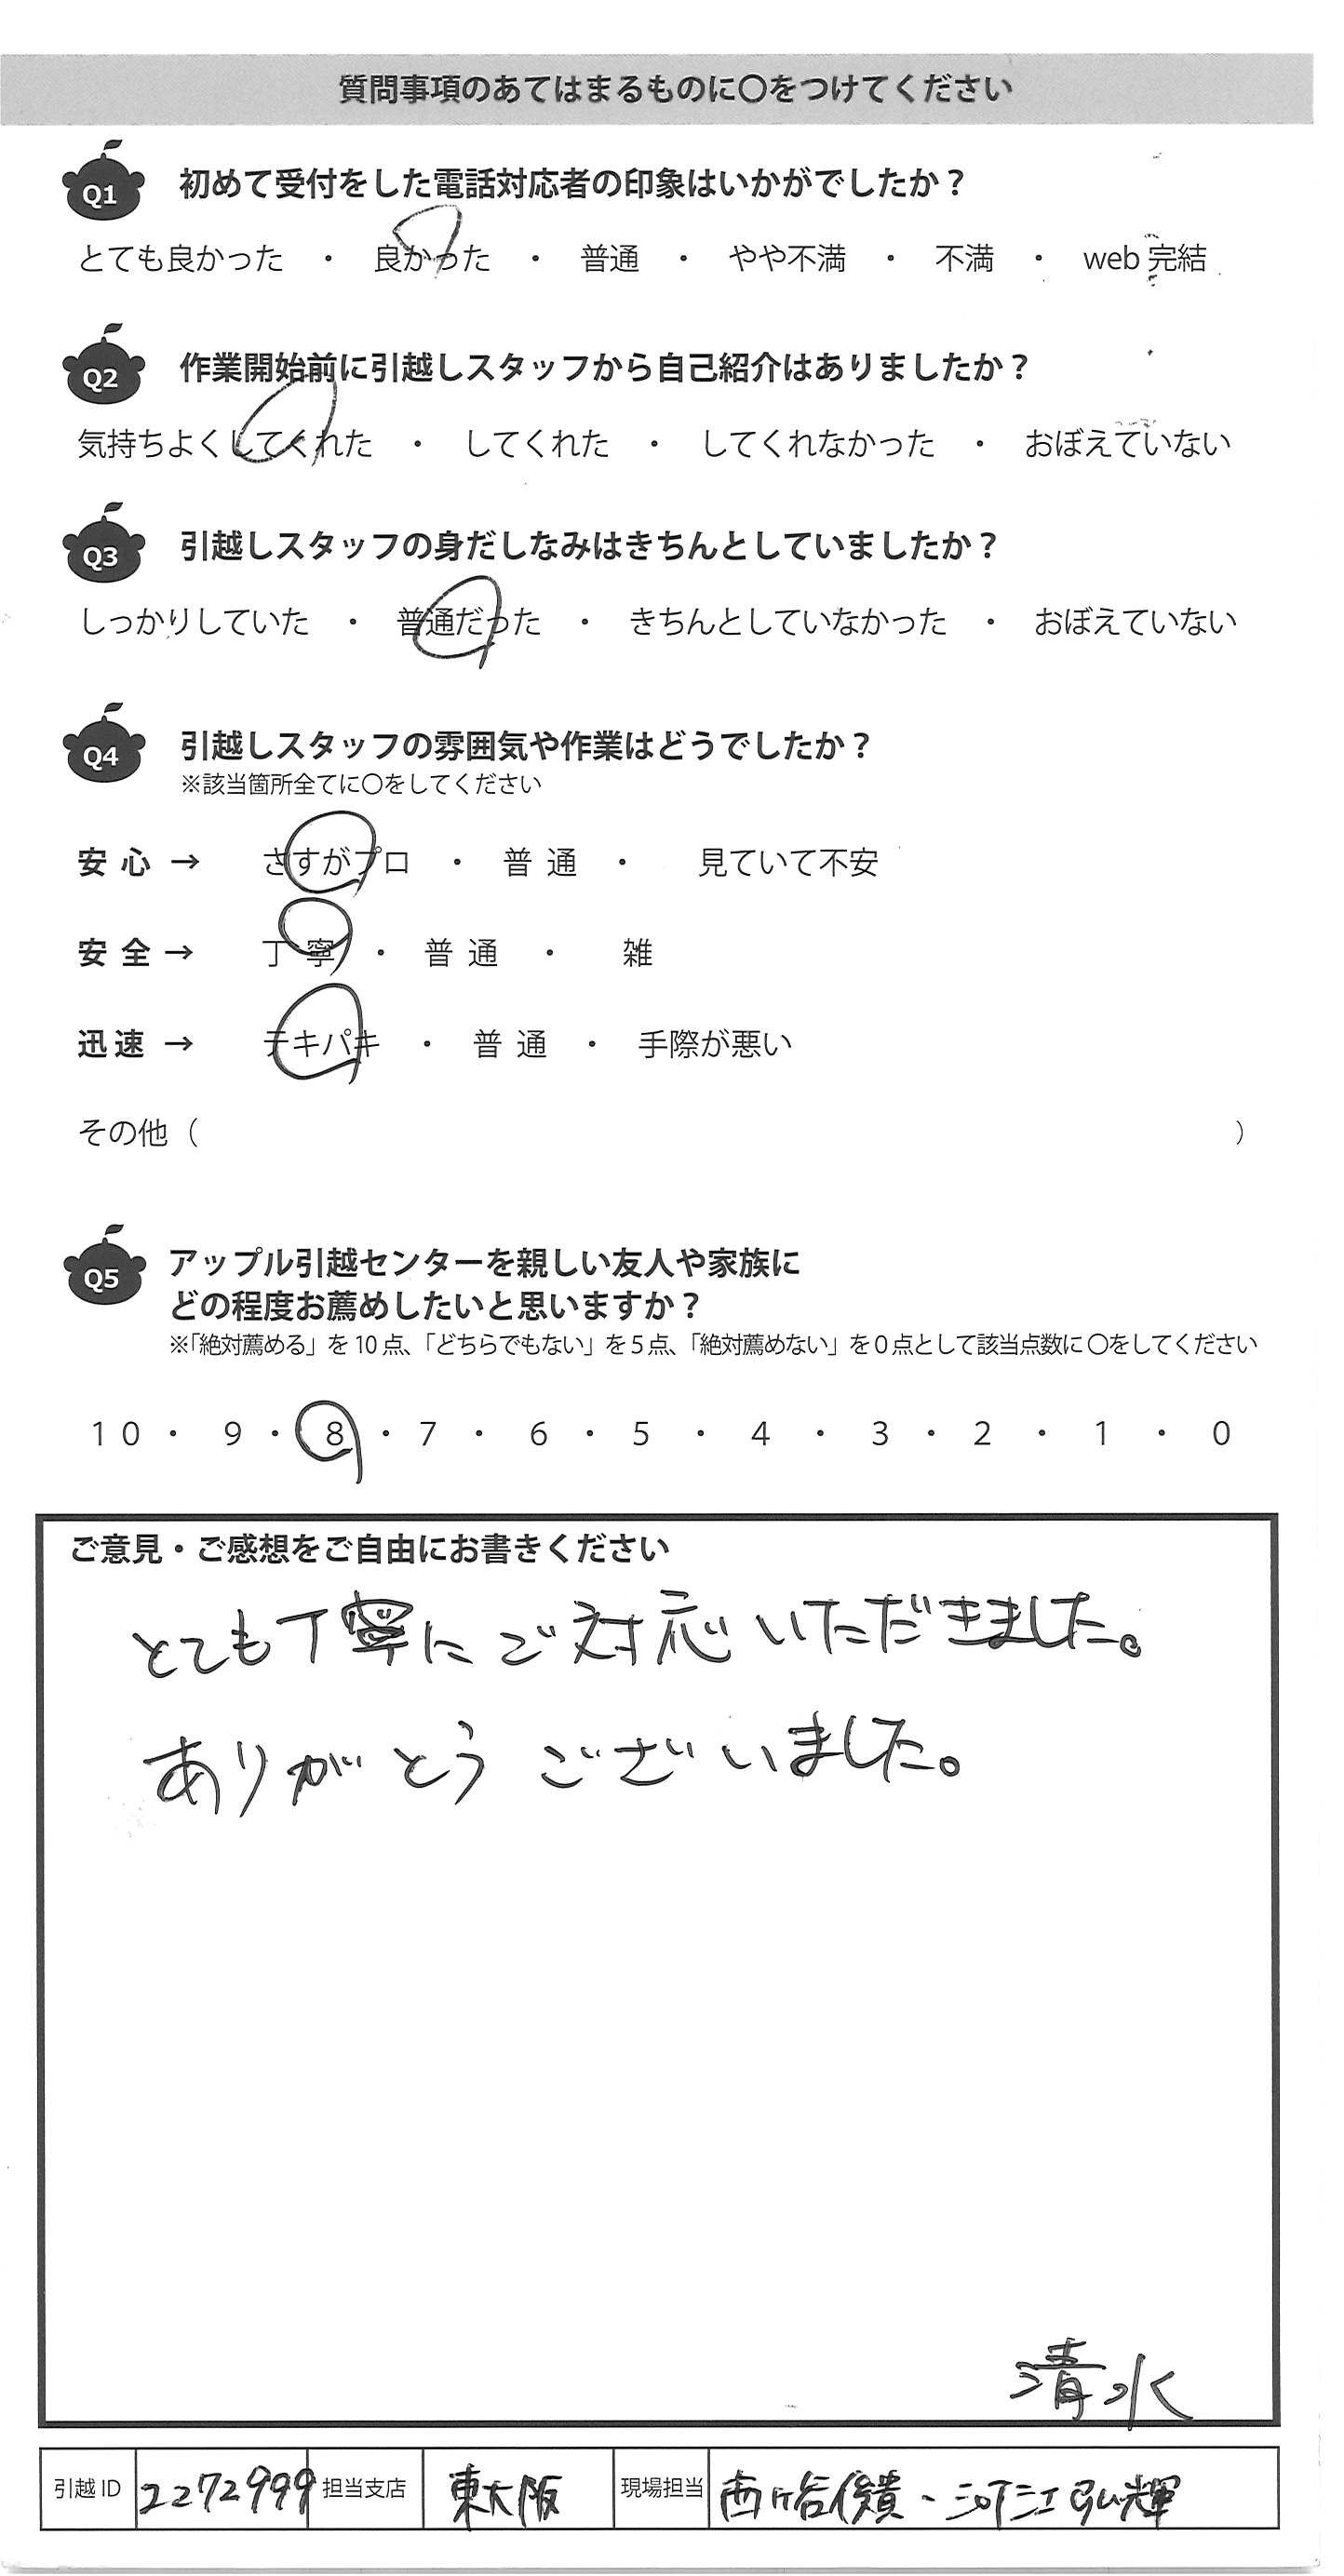 質問事項のあてはまるものに〇をつけてください
Q1 初めて受付をした電話対応者の印象はいかがでしたか？
とても良かった ・ 良かった ・ 普通 ・ やや不満 ・ 不満 ・ web 完結
Q2 作業開始前に引越しスタッフから自己紹介はありましたか？
気持ちよくしてくれた ・ してくれた ・ してくれなかった ・ おぼえていない
Q3 引越しスタッフの身だしなみはきちんとしていましたか？
しっかりしていた ・ 普通だった ・ きちんとしていなかった ・ おぼえていない
Q4 引越しスタッフの雰囲気や作業はどうでしたか？
※該当箇所全てに〇をしてください
安心 → さすがプロ ・ 普通 ・ 見ていて不安
安全 → 丁寧 ・ 普通 ・ 雑
迅速 → テキパキ ・ 普通 ・ 手際が悪い
その他（ ）
Q5 アップル引越センターを親しい友人や家族に
どの程度お薦めしたいと思いますか？
※「絶対薦める」を10点、「どちらでもない」を5点、「絶対薦めない」を0点として該当点数に〇をしてください
10 ・ 9 ・ 8 ・ 7 ・ 6 ・ 5 ・ 4 ・ 3 ・ 2 ・ 1 ・ 0
ご意見・ご感想をご自由にお書きください
とても丁寧にご対応いただきました。
ありがとうございました。
清水
引越ID 2272999 担当支店 東大阪 現場担当 西ヶ谷俊貴、河江弘輝